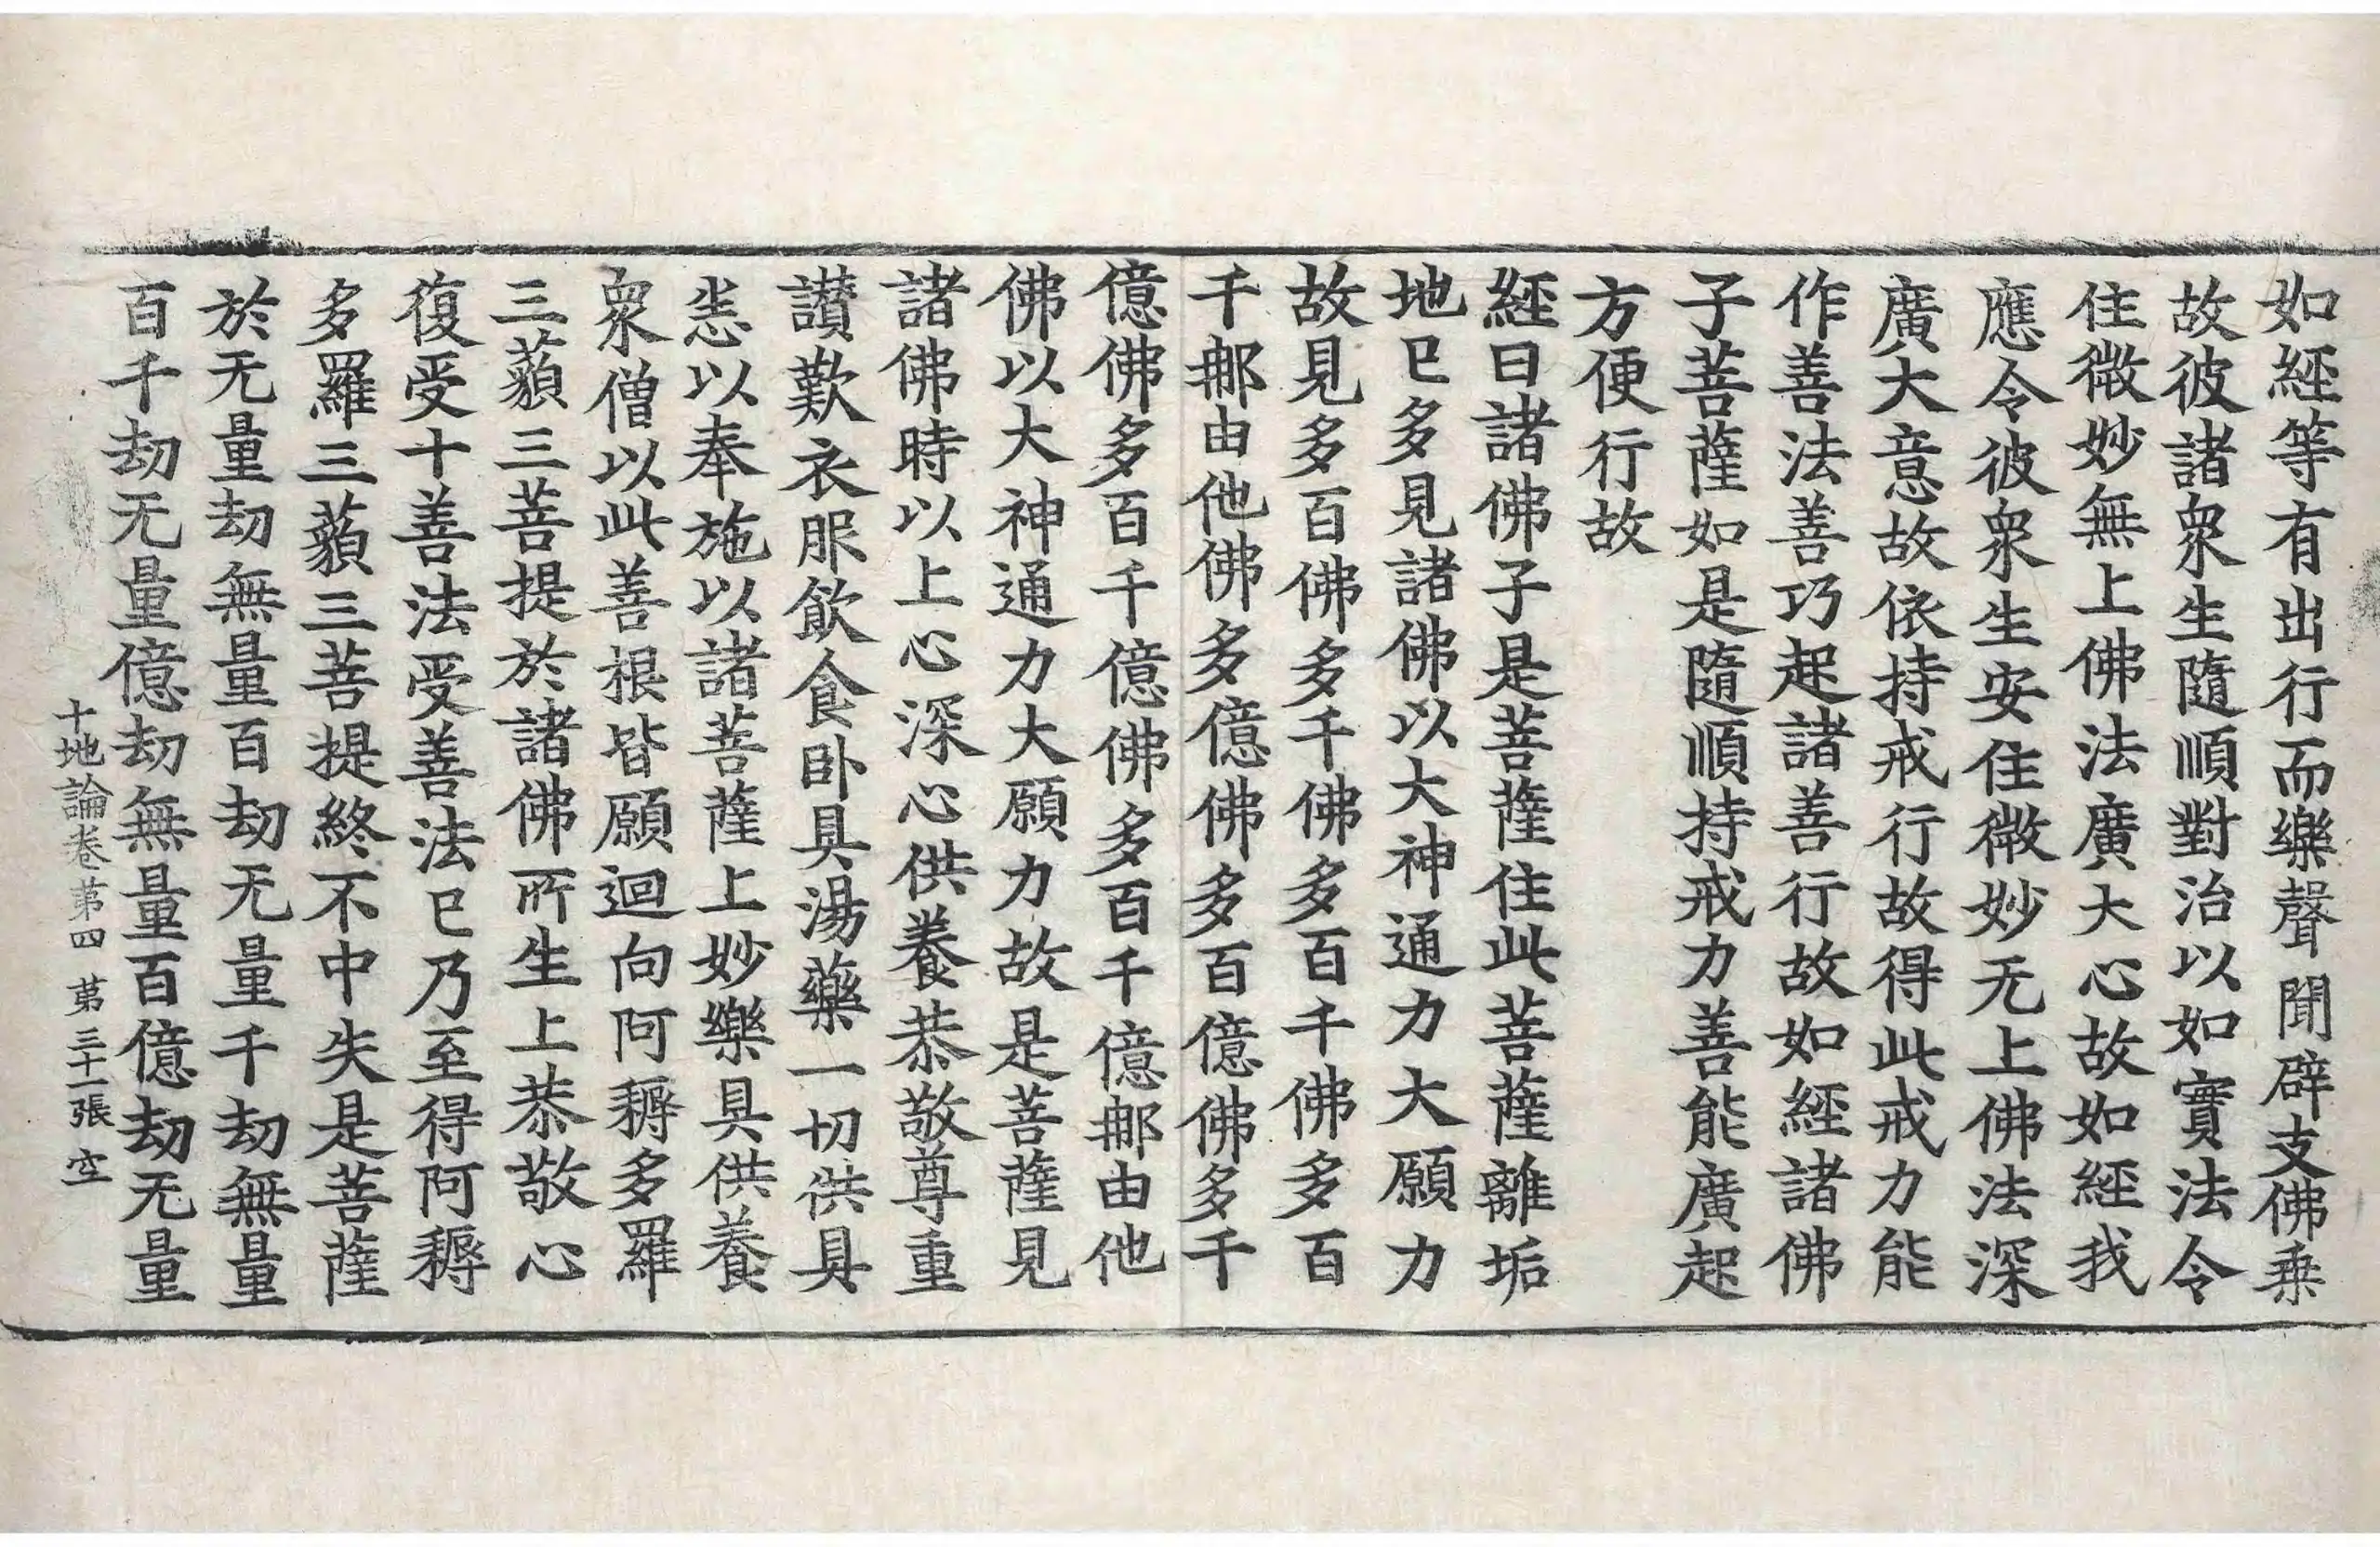 如經等有出行而樂聲聞辟支佛乗
故彼諸衆生隨順對治以如實法令
住微妙無上佛法廣大心故如經我
應令彼衆生安住微妙无上佛法深
廣大意故依持戒行故得此戒力能
作善法善巧起諸善行故如經諸佛
子菩薩如是隨順持戒力善能廣起
方便行故
經曰諸佛子是菩薩住此菩薩離垢
地已多見諸佛以大神通力大願力
故見多百佛多千佛多百千佛多百
千那由他佛多億佛多百億佛多千
億佛多百千億佛多百千億那由他
佛以大神通力大願力故是菩薩見
諸佛時以上心深心供養恭敬尊重
讃歎衣服飲食卧具湯藥一切供具
悉以奉施以諸菩薩上妙樂具供養
衆僧以此善根皆願迴向阿耨多羅
三藐三菩提於諸佛所生上恭敬心
復受十善法受善法已乃至得阿耨
多羅三藐三菩提終不中失是菩薩
於无量劫無量百劫无量千劫無量
百千劫无量億劫無量百億劫无量
十地論卷苐四 苐三十一張 空